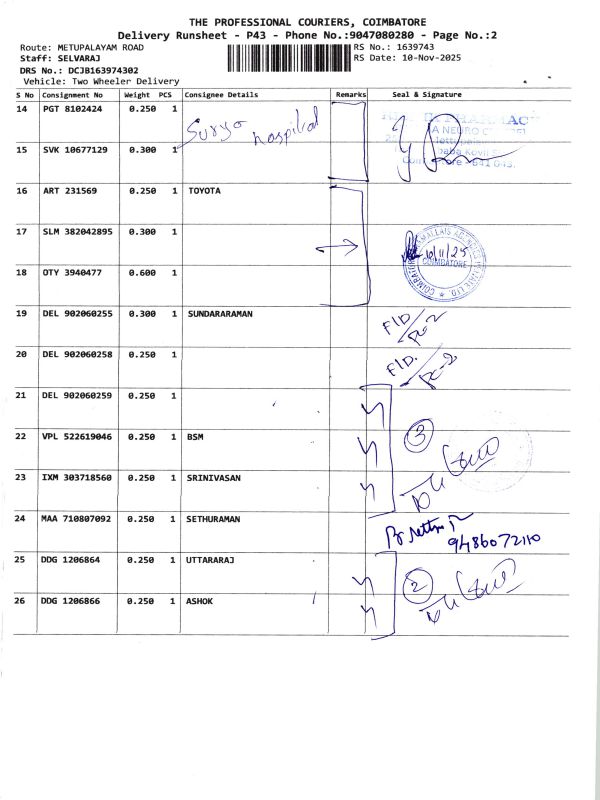 THE PROFESSIONAL COURIERS, COIMBATORE
Delivery Runsheet - P43 - Phone No.:9047080280 - Page No.:2
Route: METUPALAYAM ROAD RS No.: 1639743
Staff: SELVARAJ RS Date: 10-Nov-2025
DRS No.: DCJB163974302
Vehicle: Two Wheeler Delivery
S No Consignment No Weight PCS Consignee Details Remarks Seal & Signature
14 PGT 8102424 0.250 1
Surya hospital
15 SVK 10677129 0.300 1
16 ART 231569 0.250 1 TOYOTA
17 SLM 382042895 0.300 1
10/11/25
COIMBATORE
18 OTY 3940477 0.600 1
19 DEL 902060255 0.300 1 SUNDARARAMAN
20 DEL 902060258 0.250 1
21 DEL 902060259 0.250 1
22 VPL 522619046 0.250 1 BSM 3
23 IXM 303718560 0.250 1 SRINIVASAN
24 MAA 710807092 0.250 1 SETHURAMAN
9486072110
25 DDG 1206864 0.250 1 UTTARARAJ
26 DDG 1206866 0.250 1 ASHOK 2